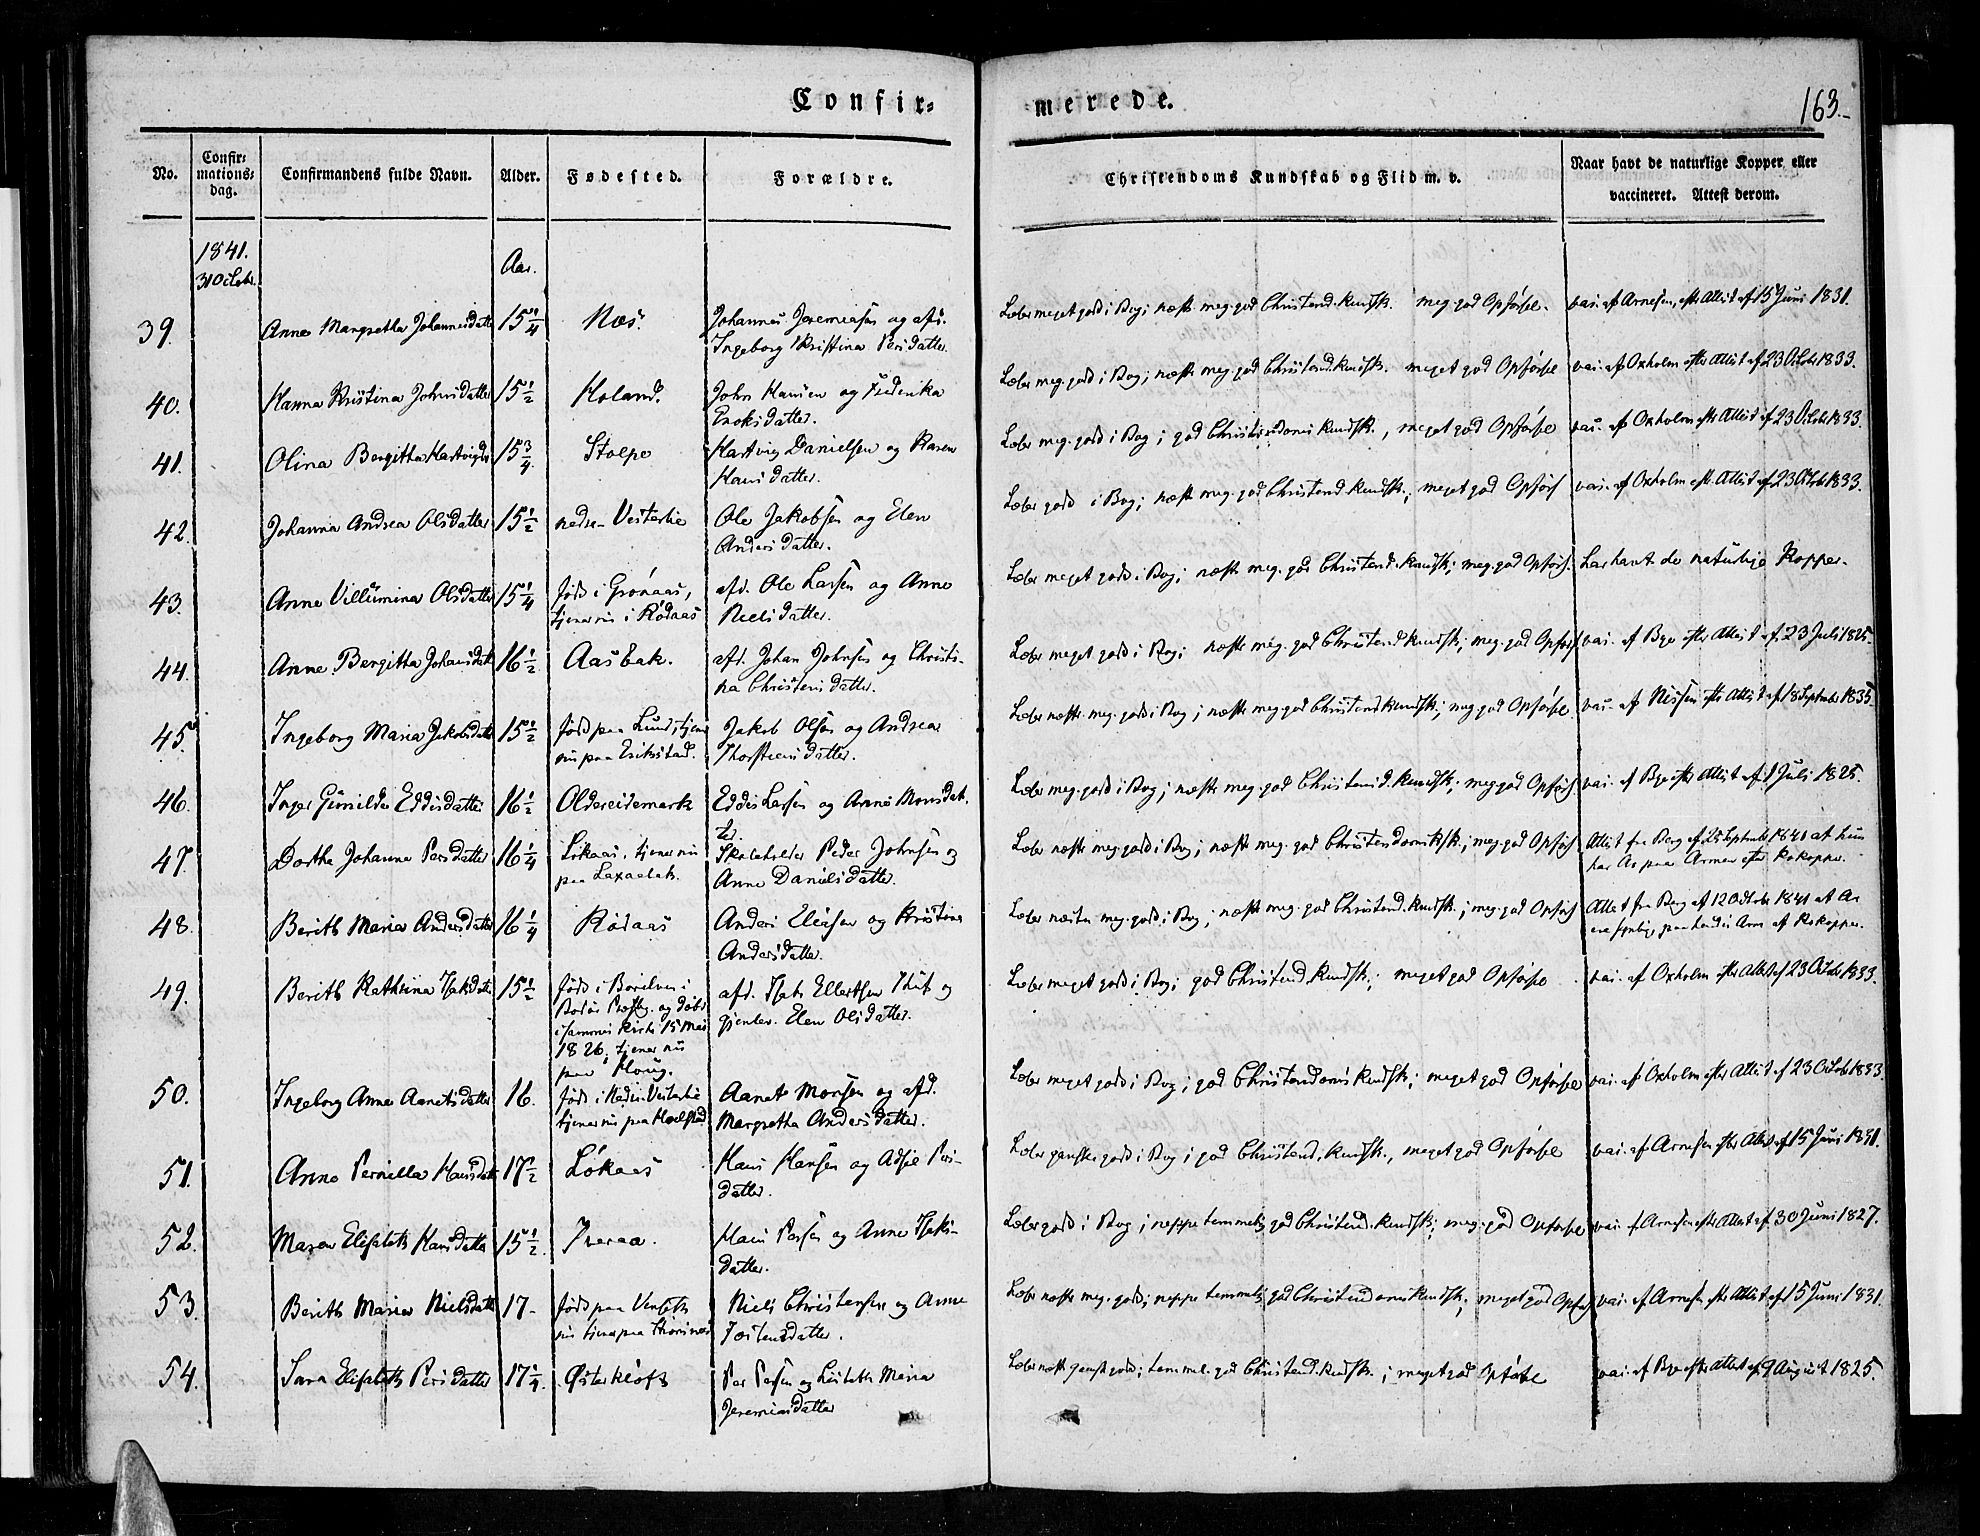 Confir=
merede.
163.
No.
Confir=
mations=
dag.
Confirmandens fulde Navn.
Alder.
Fødested.
Forældre.
Christendoms Kundskab og Flid m. v.
Naar havt de naturlige Kopper, eller
vaccineret. Attest derom.
1841.
Aar.
39. Anne Margretha Johannesdatter 15 1/4 Næs. Johannes Jeremiasen og afd.
Ingeborg Kristina Persdatter.
Læser meget godt i Bog; næsten meg. god Christend. kundsk. meg. god Opførsel. vac. af Arnesen, efter Attest af 15 Juni 1831.
40. Hanna Kristina Johnsdatter 15 1/2 Holand. John Hansen og Frederika
Enoksdatter.
Læser meg. godt i Bog; næsten meg. god Christend. kundsk. meget god Opførsel vac. af Oxholm efter Attest af 23 Octobr 1833.
41. Olina Bergitha Hartvigsd 15 3/4. Stolpe Hartvig Danielsen og Karen
Hansdatter.
Læser meg. godt i Bog; god Christendoms kundsk., meget god Opførsel vac. af Oxholm efter Attest af 23 Octobr 1833.
42. Johanna Andrea Olsdatter 15 1/2 nedre Vesterlie Ole Jakobsen og Elen
Andersdatter.
Læser godt i Bog; næsten meg. god Christend. kundsk.; meget god Opførs vac. af Oxholm efter Attest af 23 Octob 1833.
43. Anne Villumina Olsdatter 15 1/4 født i Grønaas, afd. Ole Larsen og Anne
tjener nu i Rødaas Nielsdatter.
Læser meget godt i Bog; næsten meg. god Christend. kundsk; meg. god Opførs. har havt de naturlige Kopper.
44. Anne Bergitha Johansdatt 16 1/2 Aasbak. afd. Johan Johnsen og Christi-
na Christensdatter.
Læser meget godt i Bog; næsten meg. god Christend. kundsk; meg. god Opførs vac. af Bye efter Attest af 23 Juli 1825.
45. Ingeborg Maria Jakobsdatt 15 1/2 født paa Lund, tjener Jakob Olsen og Andrea
nu paa Erikstad. Thorsteinsdatter.
Læser næsten meg. godt i Bog; næsten meg god Christend kundsk.; meg god Opførsel. vac. af Nissen efter Attest af 18 September 1835.
46. Inger Gunilda Eddisdatter 16 1/2 Oldereidemark Eddis Larsen og Anne Monsdat-
ter.
Læser meg. godt i Bog; næsten meg. god Christend. kundsk; meg god Opførs. vac. af Bye efter Attest af 1 Juli 1825.
47. Dorthe Johanna Persdatter 16 1/4 Løkaas, tjener nu Skoleholder Peder Johnsen og
paa Laxaelek. Anne Danielsdatter.
Læser næsten meg. godt i Bog; næsten meg. god Christendomsksk.; meg. god Opførs Attest fra Berg af 25 September 1841 at hun
har Ar paa Armen efter Kokopper.
48. Berith Maria Andersdatter 16 1/4 Rødaas Anders Eliasen og Kristina
Andersdatter.
Læser næsten meg. godt i Bog; næsten meg. god Christend. kundsk.; meg. god Opførs Attest fra Berg af 12 Octobr 1841 at Ar
ere synlige paa hendes Arm af Kokopper.
49. Berith Kathrina Isaksdatter 15 1/2 født i
Bodøe Præstg. og døbt
i sammes Kirke 15 Mai
1826, tjener nu
paa
afd. Isak Ellertsen og
gjenlev. Elen Olsdatter.
Læser meget godt i Bog; god Christend. kundsk.; meget god Opførsel vac. af Oxholm efter Attest af 23 Octobr 1833.
50. Ingeborg Anne Aanetsdatter 16. født i Nedre Vesterlie Aanet Monsen og afd.
tjener nu paa Margretha Andersdatter.
Læser meget godt i Bog; god Christendoms kundsk; meget god Opførsel vac. af Oxholm efter Attest af 23 Octob 1833.
51. Anne Pernilla Hansdatt 17 1/2 Løkaas Hans Hansen og Adsie Pers-
datter.
Læser ganske godt i Bog; god Christend. kundsk., meget god Opførsel vac. af Arnesen efter Attest af 15 Juni 1831.
52. Maren Elisabeth Hansdatter 15 1/2. Hans Persen og Anne Isaks-
datter.
Læser godt i Bog; neppe temmelig god Christend. kundsk; meg. god Opførsel vac. af Arnesen efter Attest af 30 Juni 1827.
53. Berith Maria Nielsdatt 17. født paa Niels Christensen og Anne
nu tjener paa Jostensdatter.
Læser næsten meg. godt; neppe temmelig god Christendoms kundsk; meget god Opførs vac. af Arnesen efter Attest af 15 Juni 1831.
54. Sara Elisabeth Persdatter 17 1/4. Østerkløft Per Persen og Lisbeth Maria
Jeremiasdatter
Læser næst ganske godt; temmel. god Christend. kundsk.; meget god Opførsel vac. af Bye efter Attest af 9 August 1825.